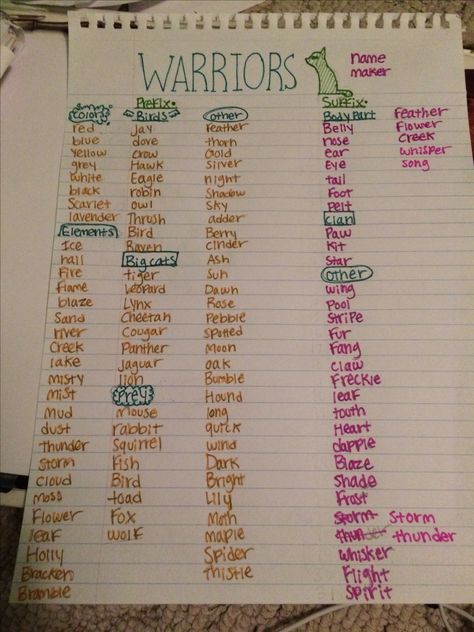 WARRIORS
name
maker
Prefix
Color
red
blue
Yellow
grey
white
black
Scarlet
lavender
Elements
Ice
hail
Fire
flame
blaze
Sand
river
Creek
lake
misty
mist
mud
dust
thunder
storm
cloud
moss
Flower
leaf
Holly
Bracken
Bramble
Birds
jay
dove
crow
Hawk
Eagle
robin
owl
Thrush
Bird
Raven
Big cats
tiger
Leopard
Lynx
Cheetah
Cougar
Panther
jaguar
lion
Prey
mouse
rabbit
Squirrel
Fish
Bird
toad
Fox
wolf
other
feather
thorn
Gold
Silver
night
Shadow
sky
adder
Berry
Cinder
Ash
Sun
Dawn
Rose
Pebble
Spotted
Moon
oak
Bumble
Hound
long
quick
wind
Dark
Bright
Lily
Moth
maple
Spider
thistle
Suffix
Body Part
Belly
nose
ear
Eye
tail
Foot
Pelt
clan
Paw
Kit
Star
other
wing
Pool
Stripe
Fur
Fang
claw
Freckle
leaf
tooth
Heart
dapple
Blaze
Shade
Frost
Storm Storm
thunder thunder
whisker
Flight
Spirit
Feather
Flower
Creek
whisper
song